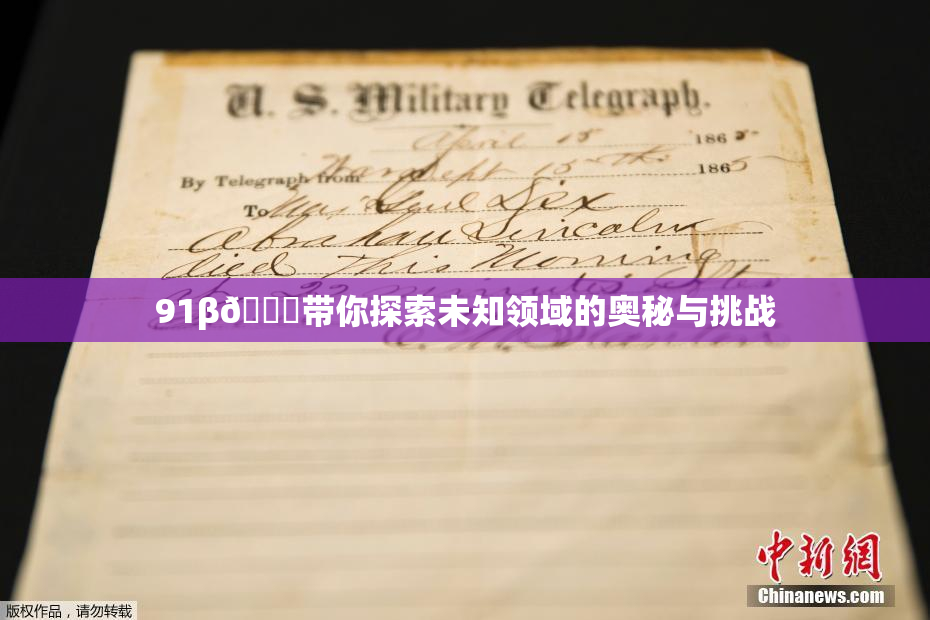 U. S. Military Telegraph.
April 15 1865
By Telegraph from War Dept 15th 1865
To Maj Genl Dix
Abraham Lincoln
died This Morning
at 22 minutes after
91βð带你探索未知领域的奥秘与挑战
E. M. Stanton
中新网
Chinanews.com
版权作品，请勿转载